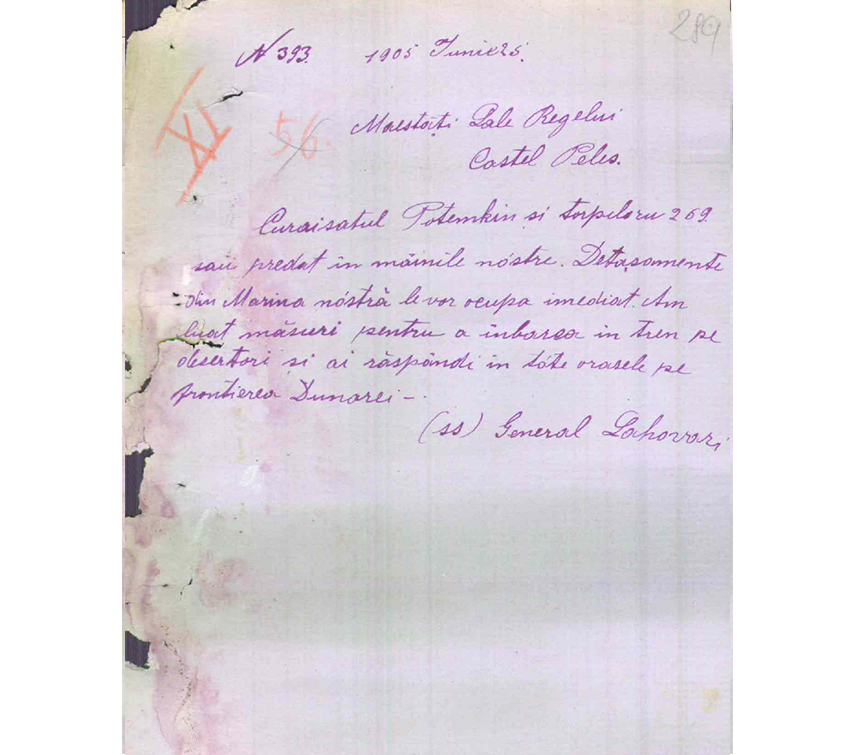 289
N 393. 1905 Iunie 25.
XI 56.
Maestăți Sale Regelui
Castel Peles.
Curaisatul Potemkin si torpiloru 269
sau predat in măinile nóstre. Detașamente
din Marina nóstră le vor ocupa imediat. Am
luat măsuri pentru a inbarca in tren pe
desertori și ai răspândi in tóte orasele pe
frontierea Dunarei –.
(ss) General Lahovari